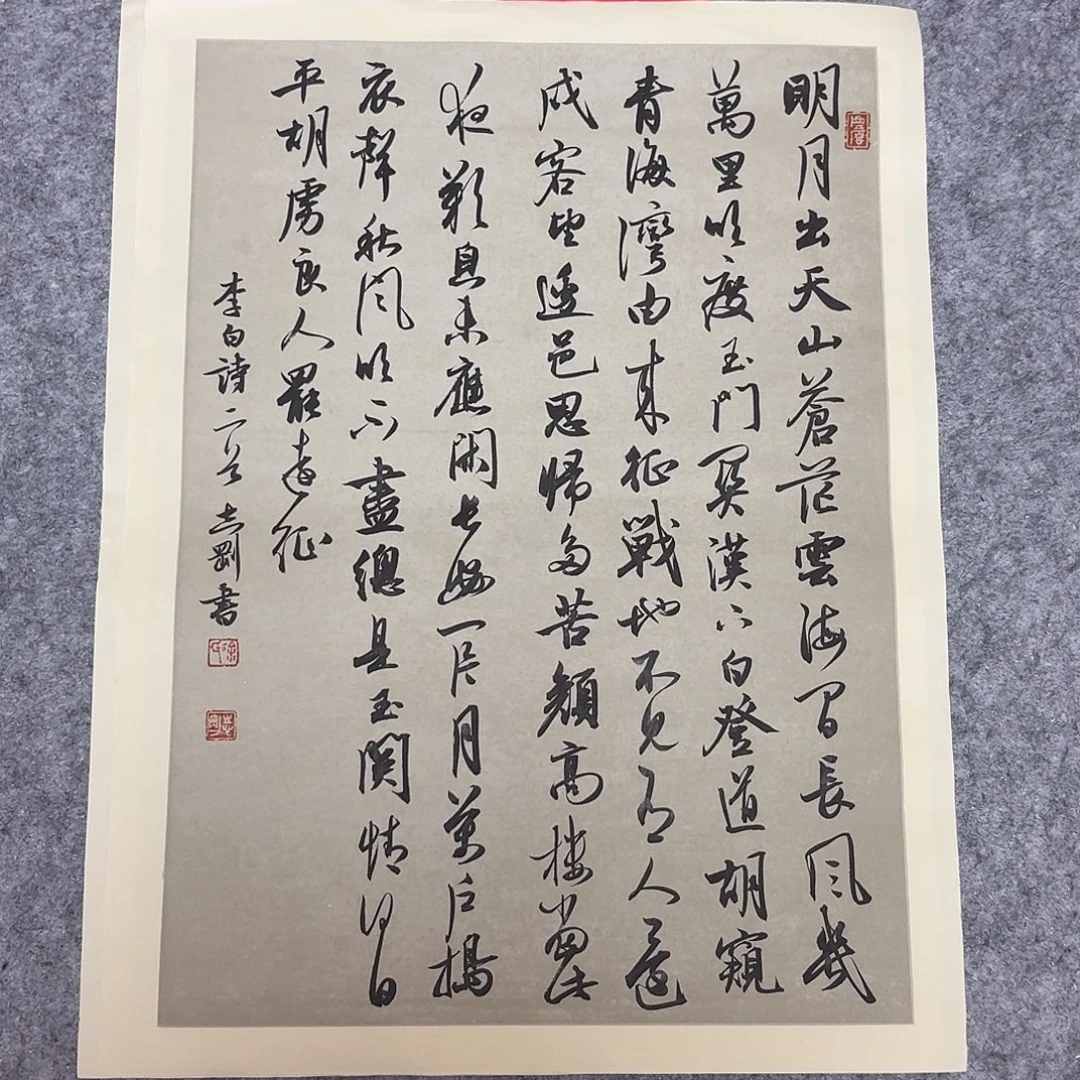 明月出天山蒼茫雲海間長風幾
萬里吹度玉門關漢下白登道胡窺
青海灣由來征戰地不見有人還
戍客望邊邑思歸多苦顏高樓當此
夜歎息未應閑長安一片月萬戶搗
衣聲秋風吹不盡總是玉關情何日
平胡虜良人罷遠征
李白詩二首 志剛書